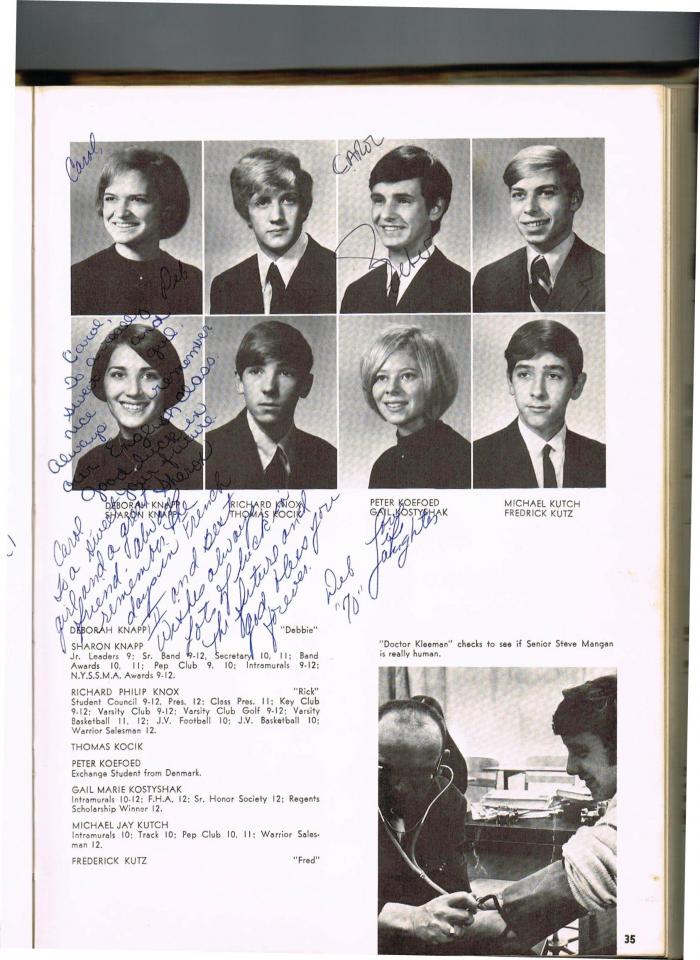 Carol,
CAROL
Peter
Deb
Carol,
To a real
sweet and
nice girl.
Always remember
our English class
Good luck in
your future
Sharon
DEBORAH KNAPP
SHARON KNAPP
RICHARD KNOX
THOMAS KOCIK
PETER KOEFOED
GAIL KOSTYSHAK
MICHAEL KUTCH
FREDRICK KUTZ
Carol
To a sweet
girl and a great
friend. Always
remember the
days in French
II and best
wishes always
Lots of luck in
the future and
God bless you
forever.
Deb
"70"
Life
Laughter
DEBORAH KNAPP "Debbie"
SHARON KNAPP
Jr. Leaders 9; Sr. Band 9-12, Secretary 10, 11; Band
Awards 10, 11; Pep Club 9, 10; Intramurals 9-12;
N.Y.S.S.M.A. Awards 9-12.
RICHARD PHILIP KNOX "Rick"
Student Council 9-12, Pres. 12; Class Pres. 11; Key Club
9-12; Varsity Club 9-12; Varsity Club Golf 9-12; Varsity
Basketball 11, 12; J.V. Football 10; J.V. Basketball 10;
Warrior Salesman 12.
THOMAS KOCIK
PETER KOEFOED
Exchange Student from Denmark.
GAIL MARIE KOSTYSHAK
Intramurals 10-12; F.H.A. 12; Sr. Honor Society 12; Regents
Scholarship Winner 12.
MICHAEL JAY KUTCH
Intramurals 10; Track 10; Pep Club 10, 11; Warrior Sales-
man 12.
FREDERICK KUTZ "Fred"
"Doctor Kleeman" checks to see if Senior Steve Mangan
is really human.
35